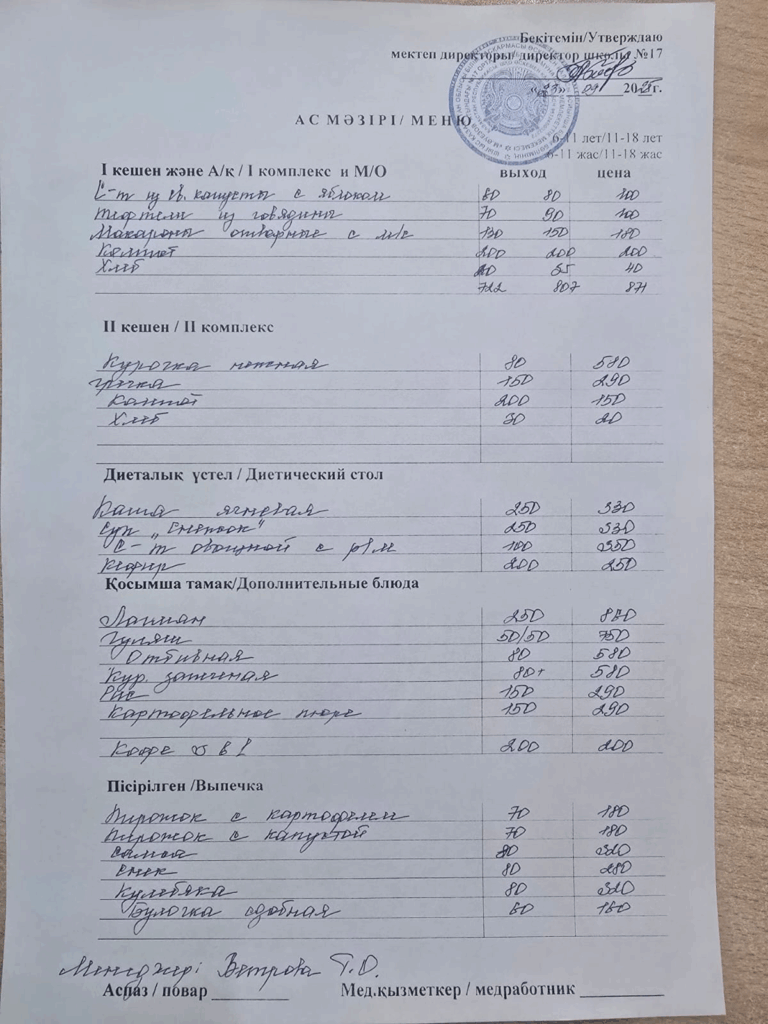 Бекітемін/Утверждаю
мектеп директоры/ директор школы №17
«23» 09 2025г.
АС МӘЗІРІ/ МЕНЮ
6-11 лет/11-18 лет
6-11 жас/11-18 жас
I кешен және А/қ / I комплекс и М/О выход цена
С-т из св. капусты с яблоком 60 80 100
Тефтели из говядины 70 90 100
Макароны отварные с м/с 130 150 180
Компот 200 200 200
Хлеб 20 35 40
722 807 871
II кешен / II комплекс
Курочка нежная 80 580
гречка 150 290
Компот 200 150
Хлеб 30 20
Диеталық үстел / Диетический стол
Каша ячневая 250 330
Суп „Снежок" 250 330
С-т овощной с р/м 100 350
Кефир 200 250
Қосымша тамақ/Дополнительные блюда
Лагман 250 870
Гуляш 50/50 750
Отбивная 80 580
Кур. запеченая 80 580
Рис 150 290
Картофельное пюре 150 290
Кофе 3 в 1 200 200
Пісірілген /Выпечка
Пирожок с картофелем 70 180
Пирожок с капустой 70 180
Самса 80 320
80 280
Кулебяка 80 320
Булочка сдобная 60 160
Менеджері Ветрова Т.О.
Аспаз / повар Мед.қызметкер / медработник